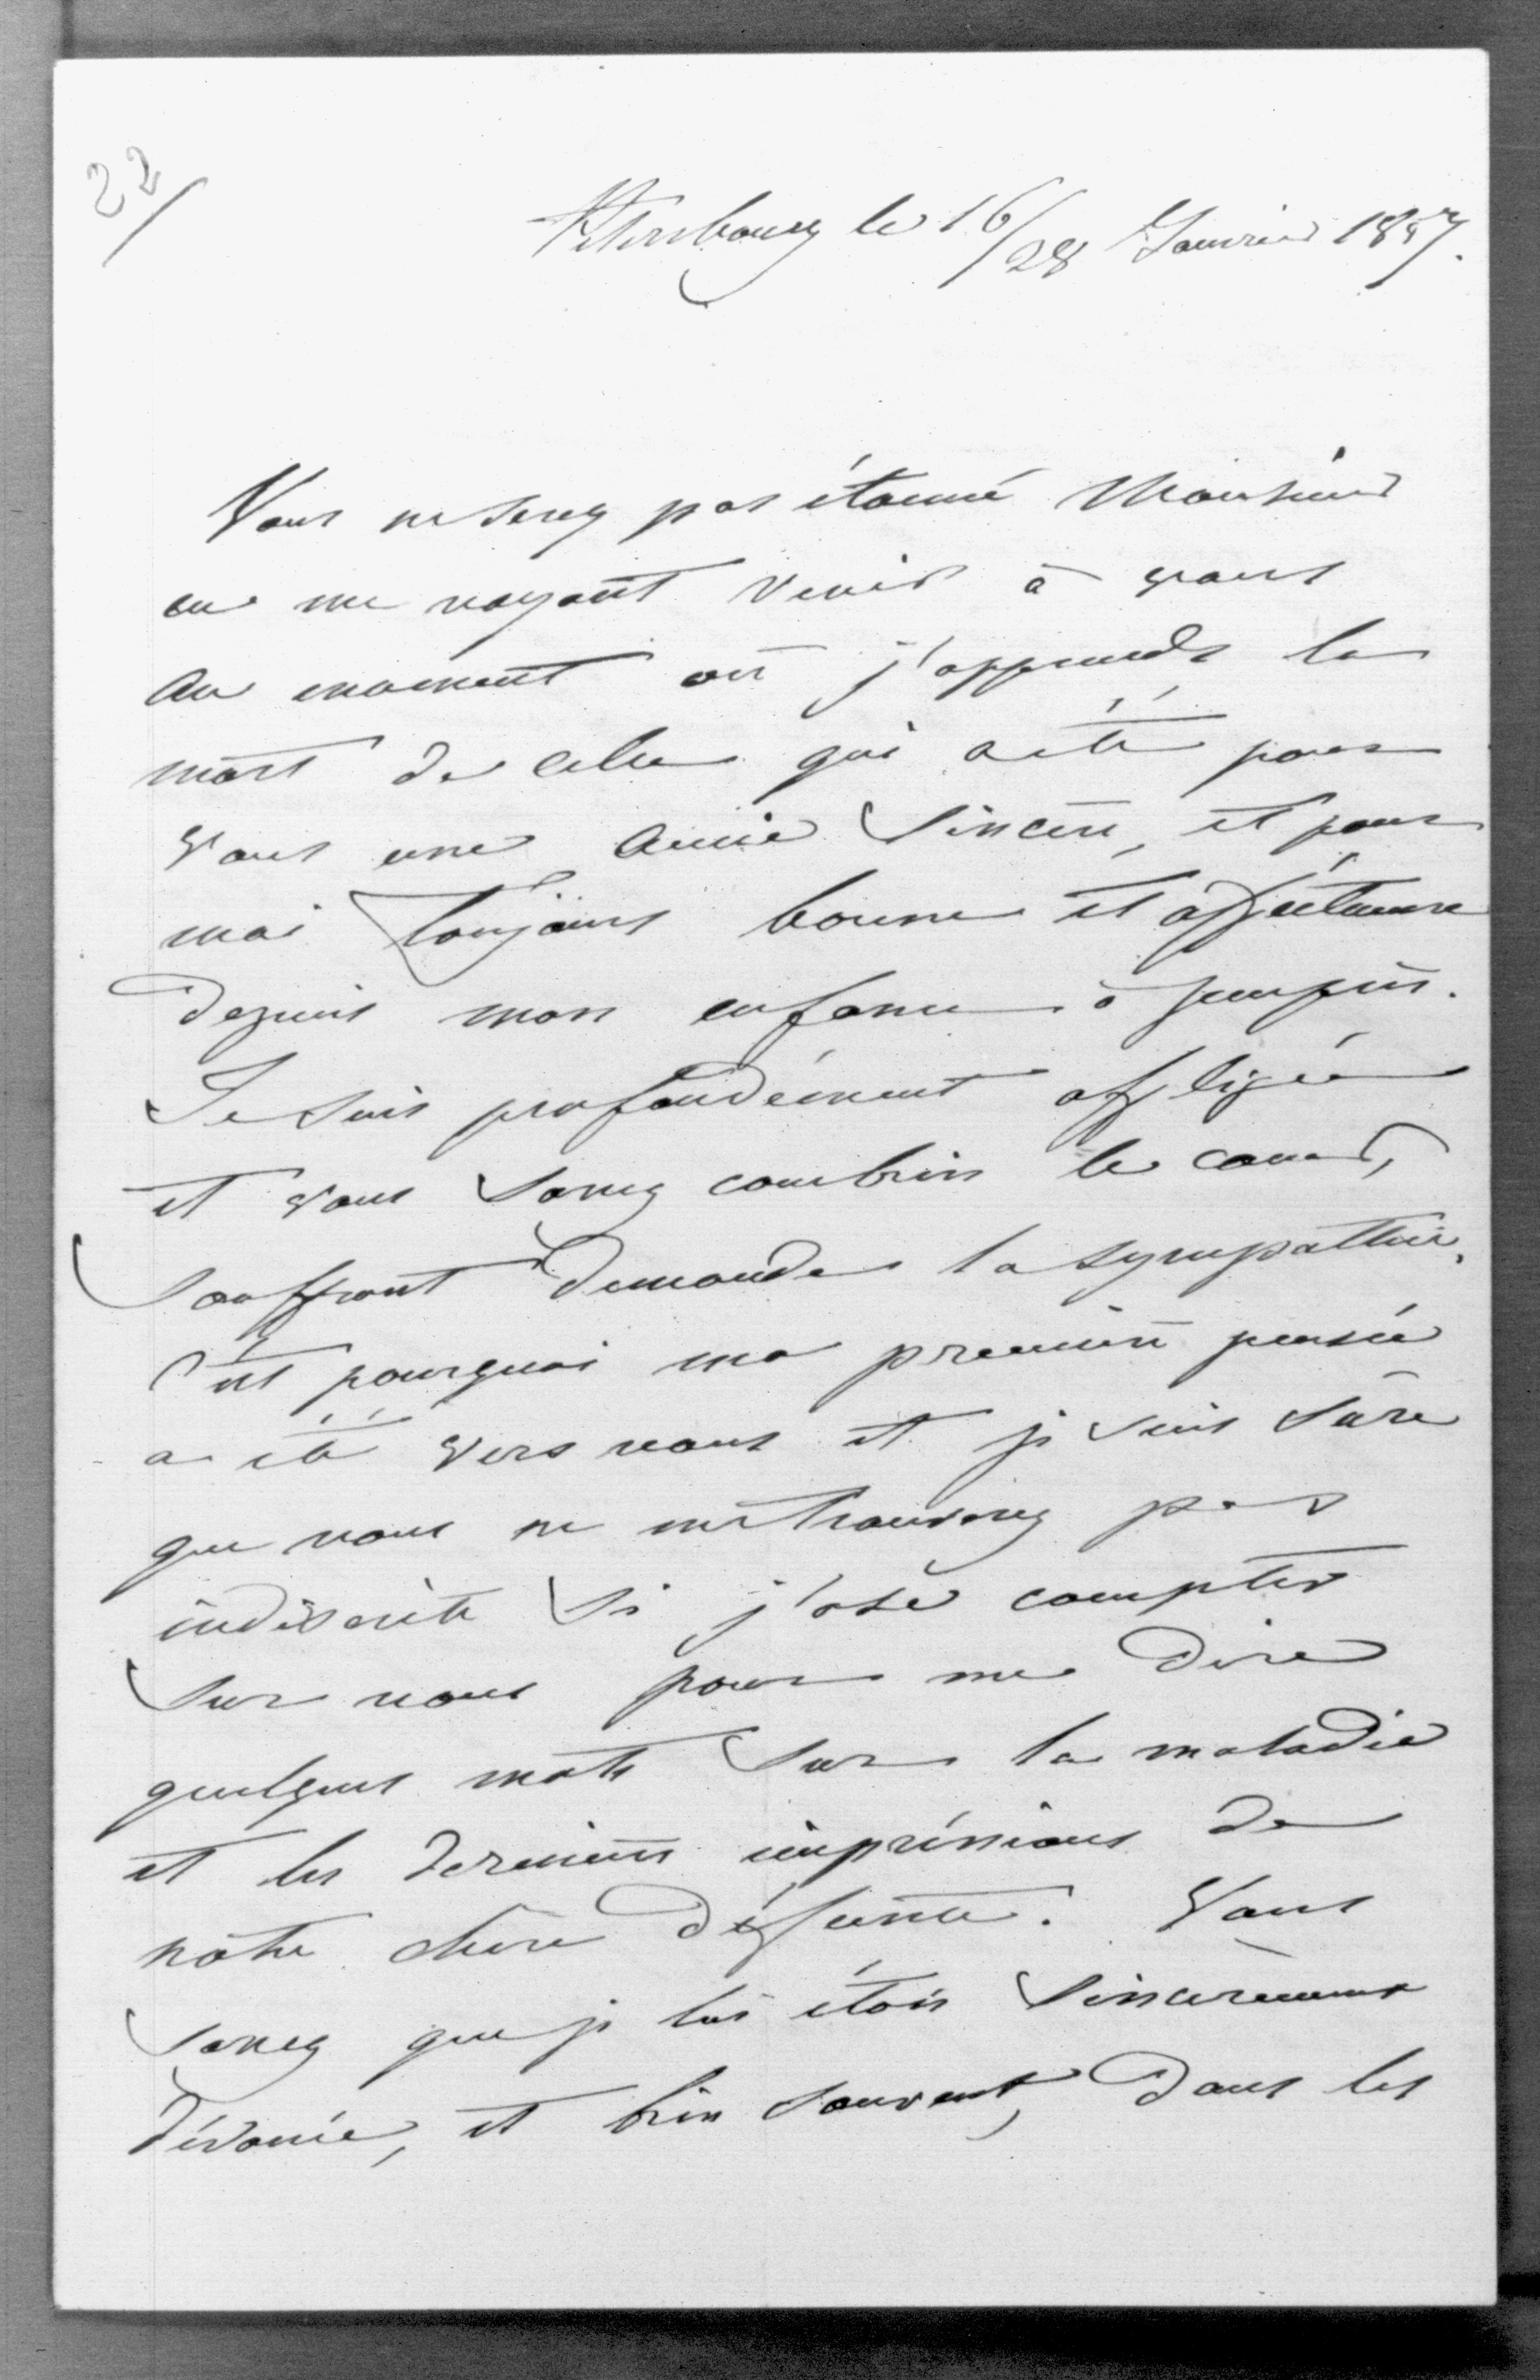 22/
Petersbourg le 16/28 Janvier 1887.
Vous ne serez pas étonné Monsieur
en me voyant venir à vous
au moment où j'apprends la
mort de celle qui a été pour
vous une amie sincère, et pour
moi toujours bonne et affectueuse
depuis mon enfance
Je suis profondément affligée
et vous savez combien le coeur,
souffrant demande la sympathie.
C'est pourquoi ma première pensée
a été vers vous et je suis sûre
que vous ne me trouverez pas
indiscrète si j'ose compter
sur vous pour me dire
quelques mots sur la maladie
et les dernières impressions de
nôtre chère défunte. Vous
savez que je lui étais sincèrement
dévouée, et bien souvent, dans les